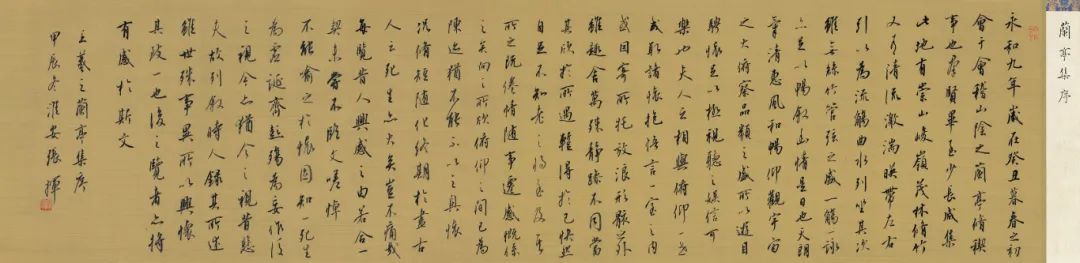 蘭亭集序
永和九年歲在癸丑暮春之初
會于會稽山陰之蘭亭脩禊
事也群賢畢至少長咸集
此地有崇山峻嶺茂林脩竹
又有清流激湍暎帶左右
引以為流觴曲水列坐其次
雖無絲竹管弦之盛一觴一詠
亦足以暢敘幽情是日也天朗
氣清惠風和暢仰觀宇宙
之大俯察品類之盛所以遊目
騁懷足以極視聽之娛信可
樂也夫人之相與俯仰一世
或取諸懷抱悟言一室之內
或因寄所托放浪形骸之外
雖趣舍萬殊靜躁不同當
其欣於所遇暫得於己快然
自足不知老之將至及其
所之既倦情隨事遷感慨係
之矣向之所欣俯仰之間已為
陳迹猶不能不以之興懷
況脩短隨化終期於盡古
人云死生亦大矣豈不痛哉
每覽昔人興感之由若合一
契未嘗不臨文嗟悼
不能喻之於懷固知一死生
為虛誕齊彭殤為妄作後
之視今亦猶今之視昔悲
夫故列敘時人錄其所述
雖世殊事異所以興懷
其致一也後之覽者亦將
有感於斯文
王羲之蘭亭集序
甲辰冬淮安張輝